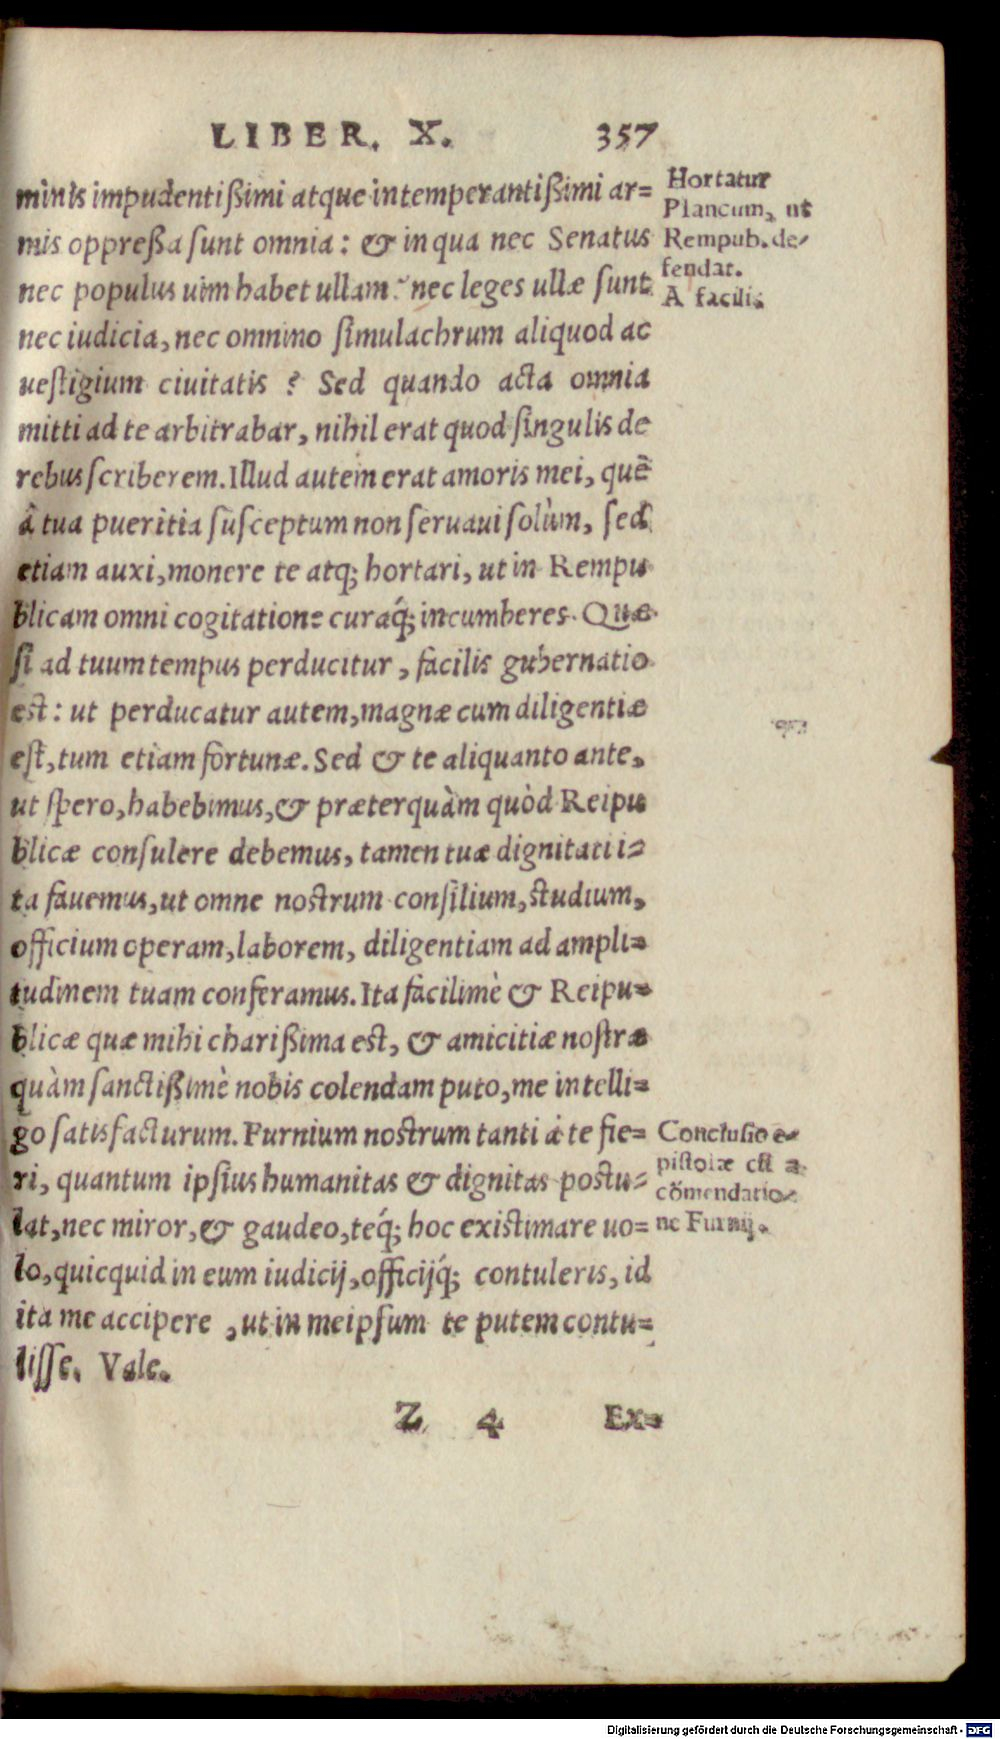 LIBER. X. 357
minis impudentißimi atque intemperantißimi ar=
mis oppreßa sunt omnia: & in qua nec Senatus
nec populus uim habet ullam: nec leges ullæ sunt
nec iudicia, nec omnino simulachrum aliquod ac
uestigium ciuitatis ? Sed quando acta omnia
mitti ad te arbitrabar, nihil erat quod singulis de
rebus scriberem. Illud autem erat amoris mei, quẽ
à tua pueritia susceptum non seruaui solùm, sed
etiam auxi, monere te atq; hortari, ut in Rempu
blicam omni cogitatione curaq́; incumberes. Quæ
si ad tuum tempus perducitur, facilis gubernatio
est: ut perducatur autem, magnæ cum diligentiæ
est, tum etiam fortunæ. Sed & te aliquanto ante,
ut spero, habebimus, & præterquàm quòd Reipu
blicæ consulere debemus, tamen tuæ dignitati i=
ta fauemus, ut omne nostrum consilium, studium,
officium operam, laborem, diligentiam ad ampli=
tudinem tuam conferamus. Ita facilimè & Reipu=
blicæ quæ mihi charißima est, & amicitiæ nostræ
quàm sanctißimè nobis colendam puto, me intelli=
go satisfacturum. Furnium nostrum tanti à te fie=
ri, quantum ipsius humanitas & dignitas postu=
lat, nec miror, & gaudeo, teq́; hoc existimare uo=
lo, quicquid in eum iudicij, officijq́; contuleris, id
ita me accipere , ut in meipsum te putem contu=
lisse. Vale.
Z 4 Ex=
Hortatur
Plancum, ut
Rempub. de-
fendat.
A facili.
Conclusio e-
pistolæ est a
cõmendatio-
ne Furnij.
Digitalisierung gefördert durch die Deutsche Forschungsgemeinschaft - DFG